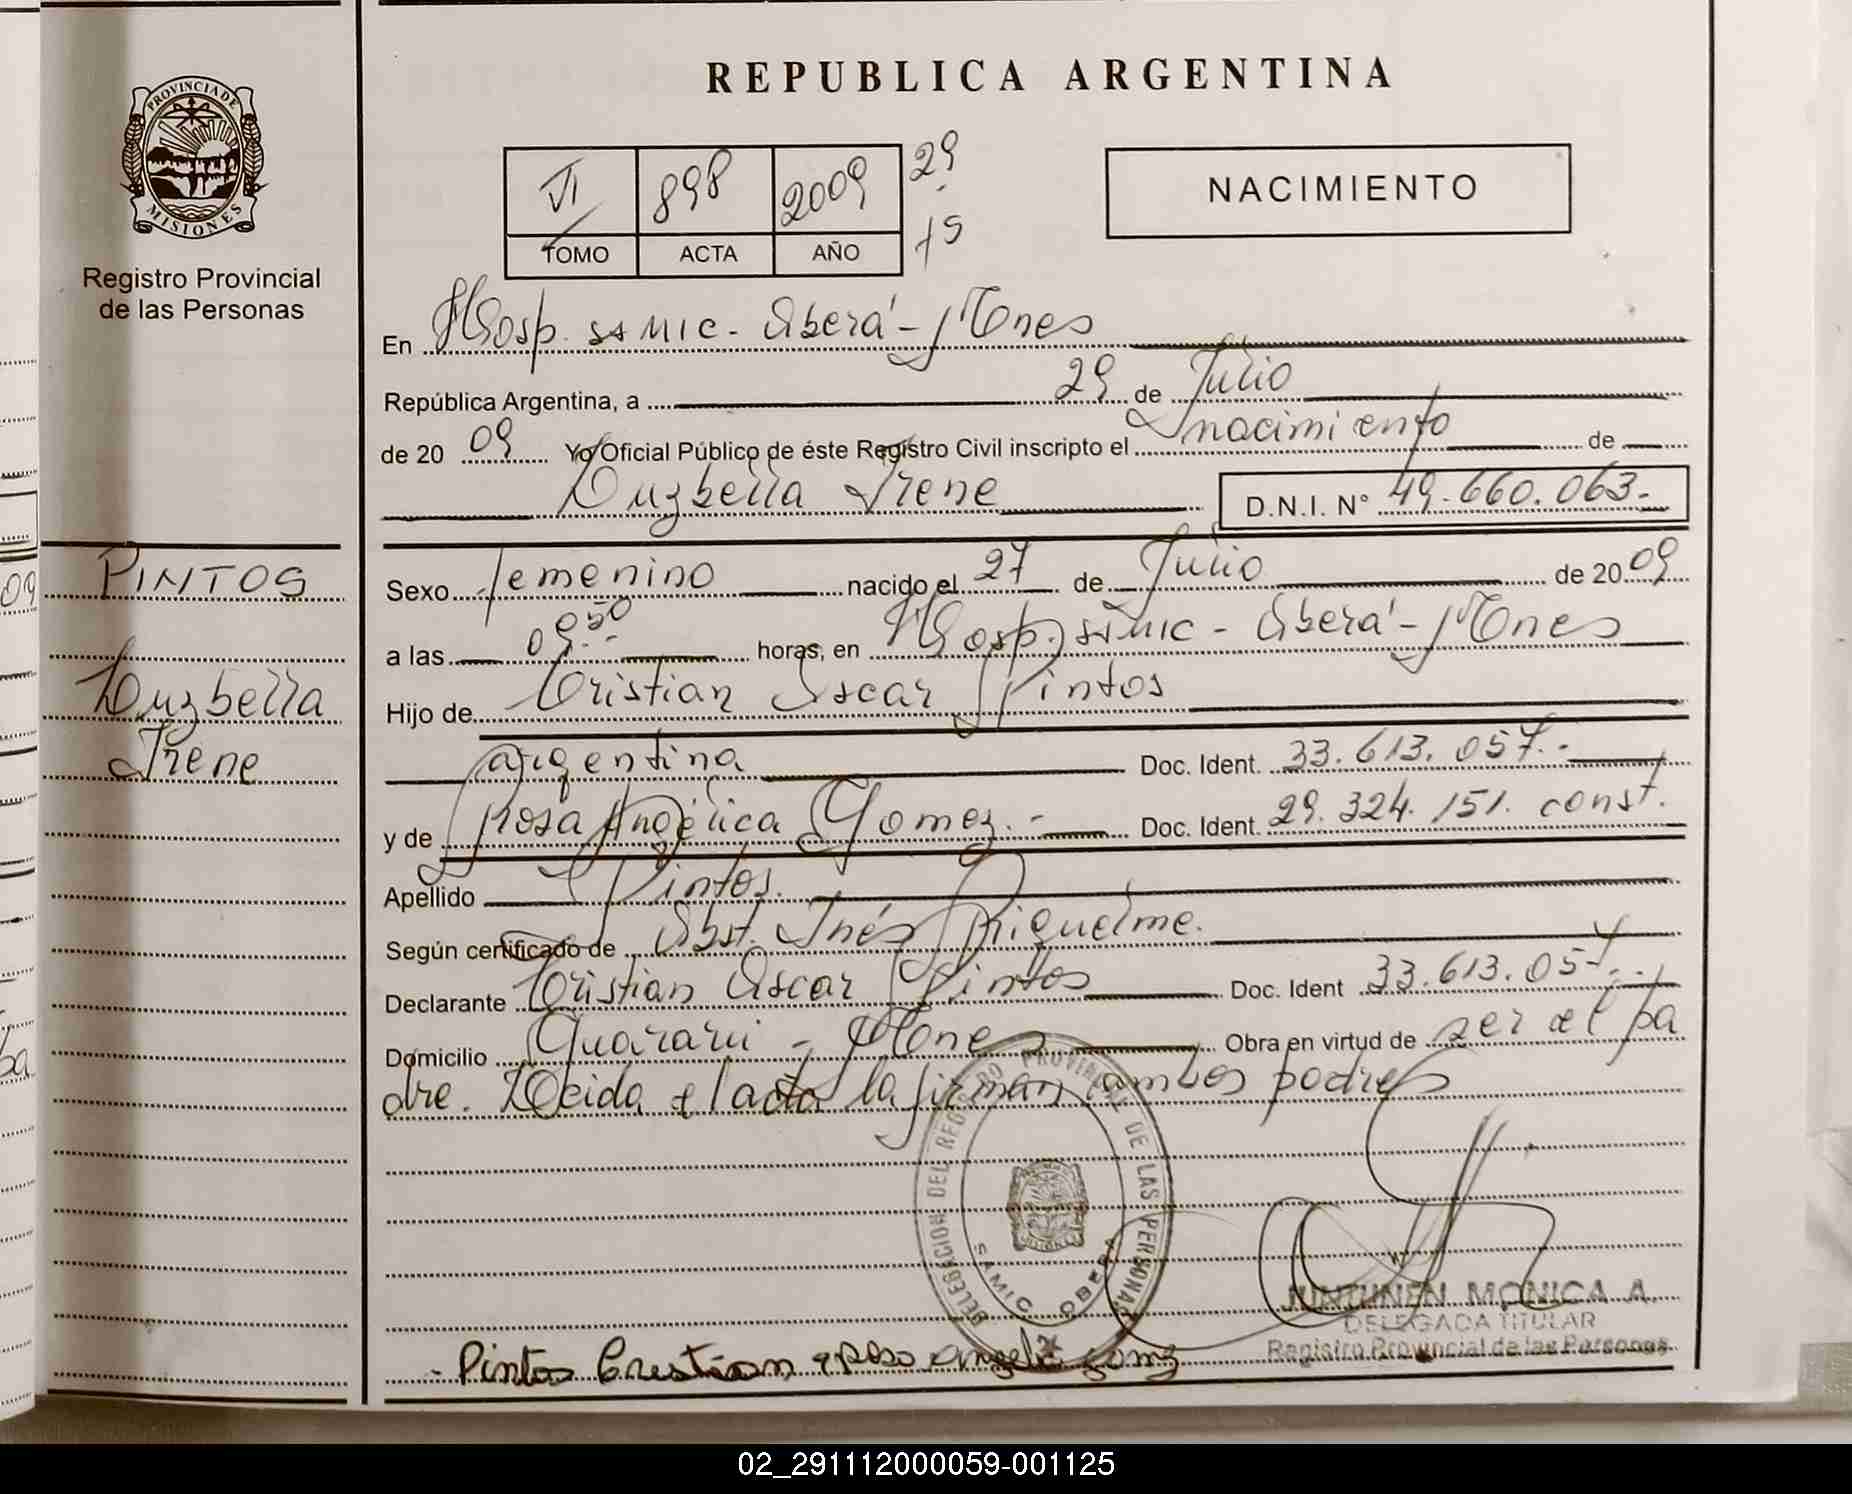 REPUBLICA ARGENTINA
PROVINCIA DE MISIONES
Registro Provincial
de las Personas
VI 898 2009 29
TOMO ACTA AÑO 15
NACIMIENTO
En Hosp. SAMIC - Oberá - Mnes
República Argentina, a 29 de Julio
de 20 09 Yo Oficial Público de éste Registro Civil inscripto el nacimiento de
Luzbella Irene D.N.I. N° 49.660.063.-
PINTOS
Luzbella
Irene
Sexo femenino nacido el 27 de Julio de 20 09
a las 09:50 horas, en Hosp. SAMIC - Oberá - Mnes
Hijo de Cristian Oscar Pintos
argentina Doc. Ident. 33.613.057.-
y de Rosa Angélica Gomez.- Doc. Ident. 29.324.151. const.
Apellido Pintos.
Según certificado de Obst. Inés Riquelme.
Declarante Cristian Oscar Pintos Doc. Ident 33.613.057.-
Domicilio Guaraní - Mnes Obra en virtud de ser el pa
dre. Leída el acta la firman ambos padres
DELEGACION DEL REGISTRO PROVINCIAL DE LAS PERSONAS
SAMIC OBERA
JUNTUNEN MONICA A.
DELEGADA TITULAR
Registro Provincial de las Personas
- Pintos Cristian
02_291112000059-001125